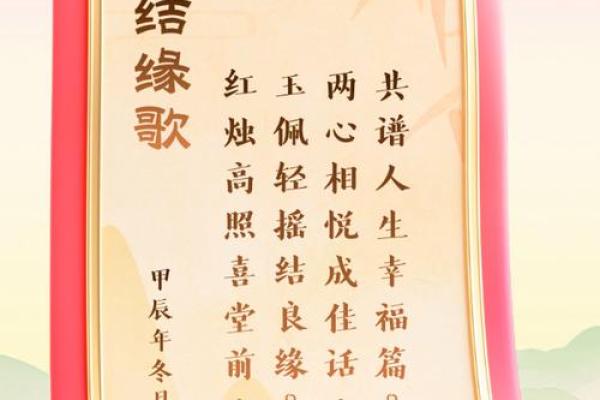 结缘歌
红烛高照喜堂前，
玉佩轻摇结良缘。
两心相悦成佳话，
共谱人生幸福篇。
甲辰年冬